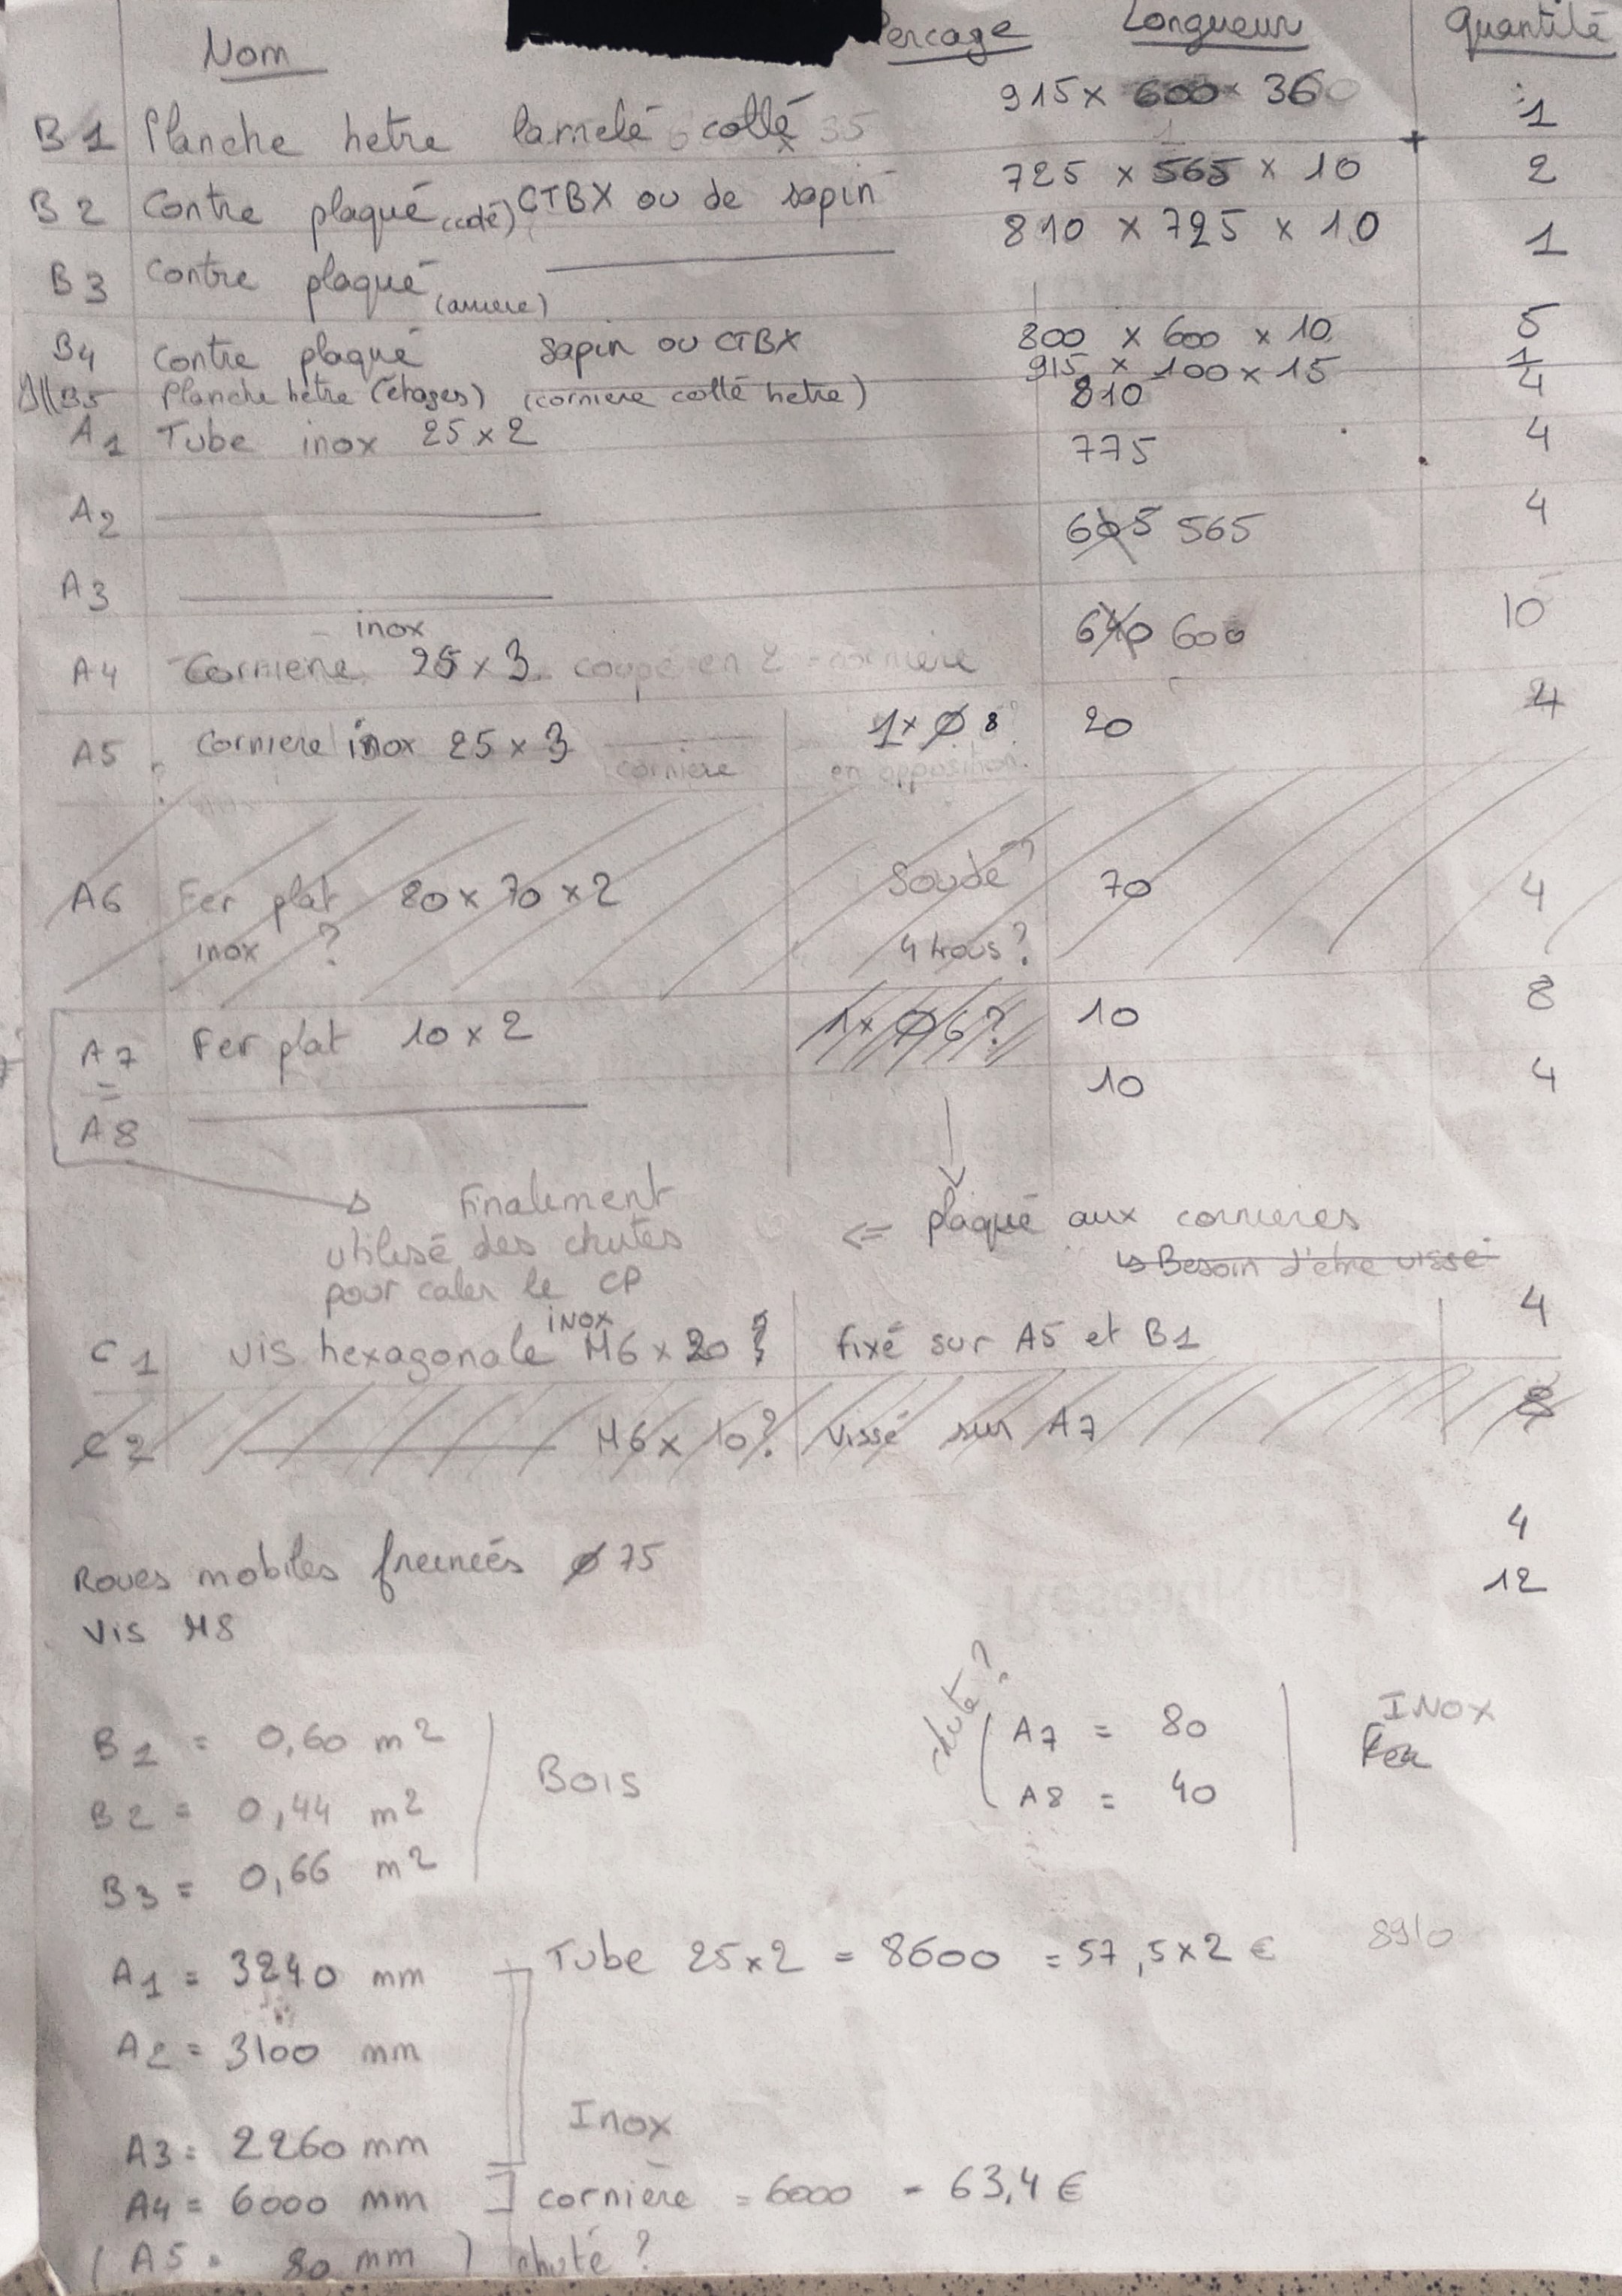 Nom Percage Longueur Quantité
B1 Planche hetre lamelé collé 915 x 600 x 36 1
B2 Contre plaqué (coté) CTBX ou de sapin 725 x 565 x 10 2
B3 Contre plaqué (arriere) 810 x 725 x 10 1
B4 Contre plaqué Sapin ou CTBX 800 x 600 x 10 5
B5 Planche hetre (étages) (corniere collé hetre) 915 x 100 x 15 1
A1 Tube inox 25 x 2 810 4
A2 775 4
A3 605 565 4
A4 Corniere inox 25 x 3 coupé en 2 corniere 640 600 10
A5 corniere inox 25 x 3 1 x Ø 8 20 4
corniere en opposition
A6 Fer plat 80 x 70 x 2 Soudé? 70 4
inox ? 4 trous?
A7 Fer plat 10 x 2 1 x Ø 6? 10 8
=
A8 10 4
Finalement
utilisé des chutes
pour caler le CP
<= plaqué aux cornieres
↳ Besoin d'etre vissé
C1 vis hexagonale inox M6 x 20 ? fixé sur A5 et B1 4
C2 M6 x 10? Vissé sur A7 8
Roues mobiles freinées Ø 75 4
Vis M8 12
B1 = 0,60 m2
B2 = 0,44 m2
B3 = 0,66 m2
Bois
chute?
A7 = 80
A8 = 40
INOX
Fer
A1 = 3240 mm
A2 = 3100 mm
A3 = 2260 mm
Tube 25x2 = 8600 = 57,5 x 2 € 8910
Inox
A4 = 6000 mm ] cornière = 6000 - 63,4 €
( A5 = 80 mm ) chute ?